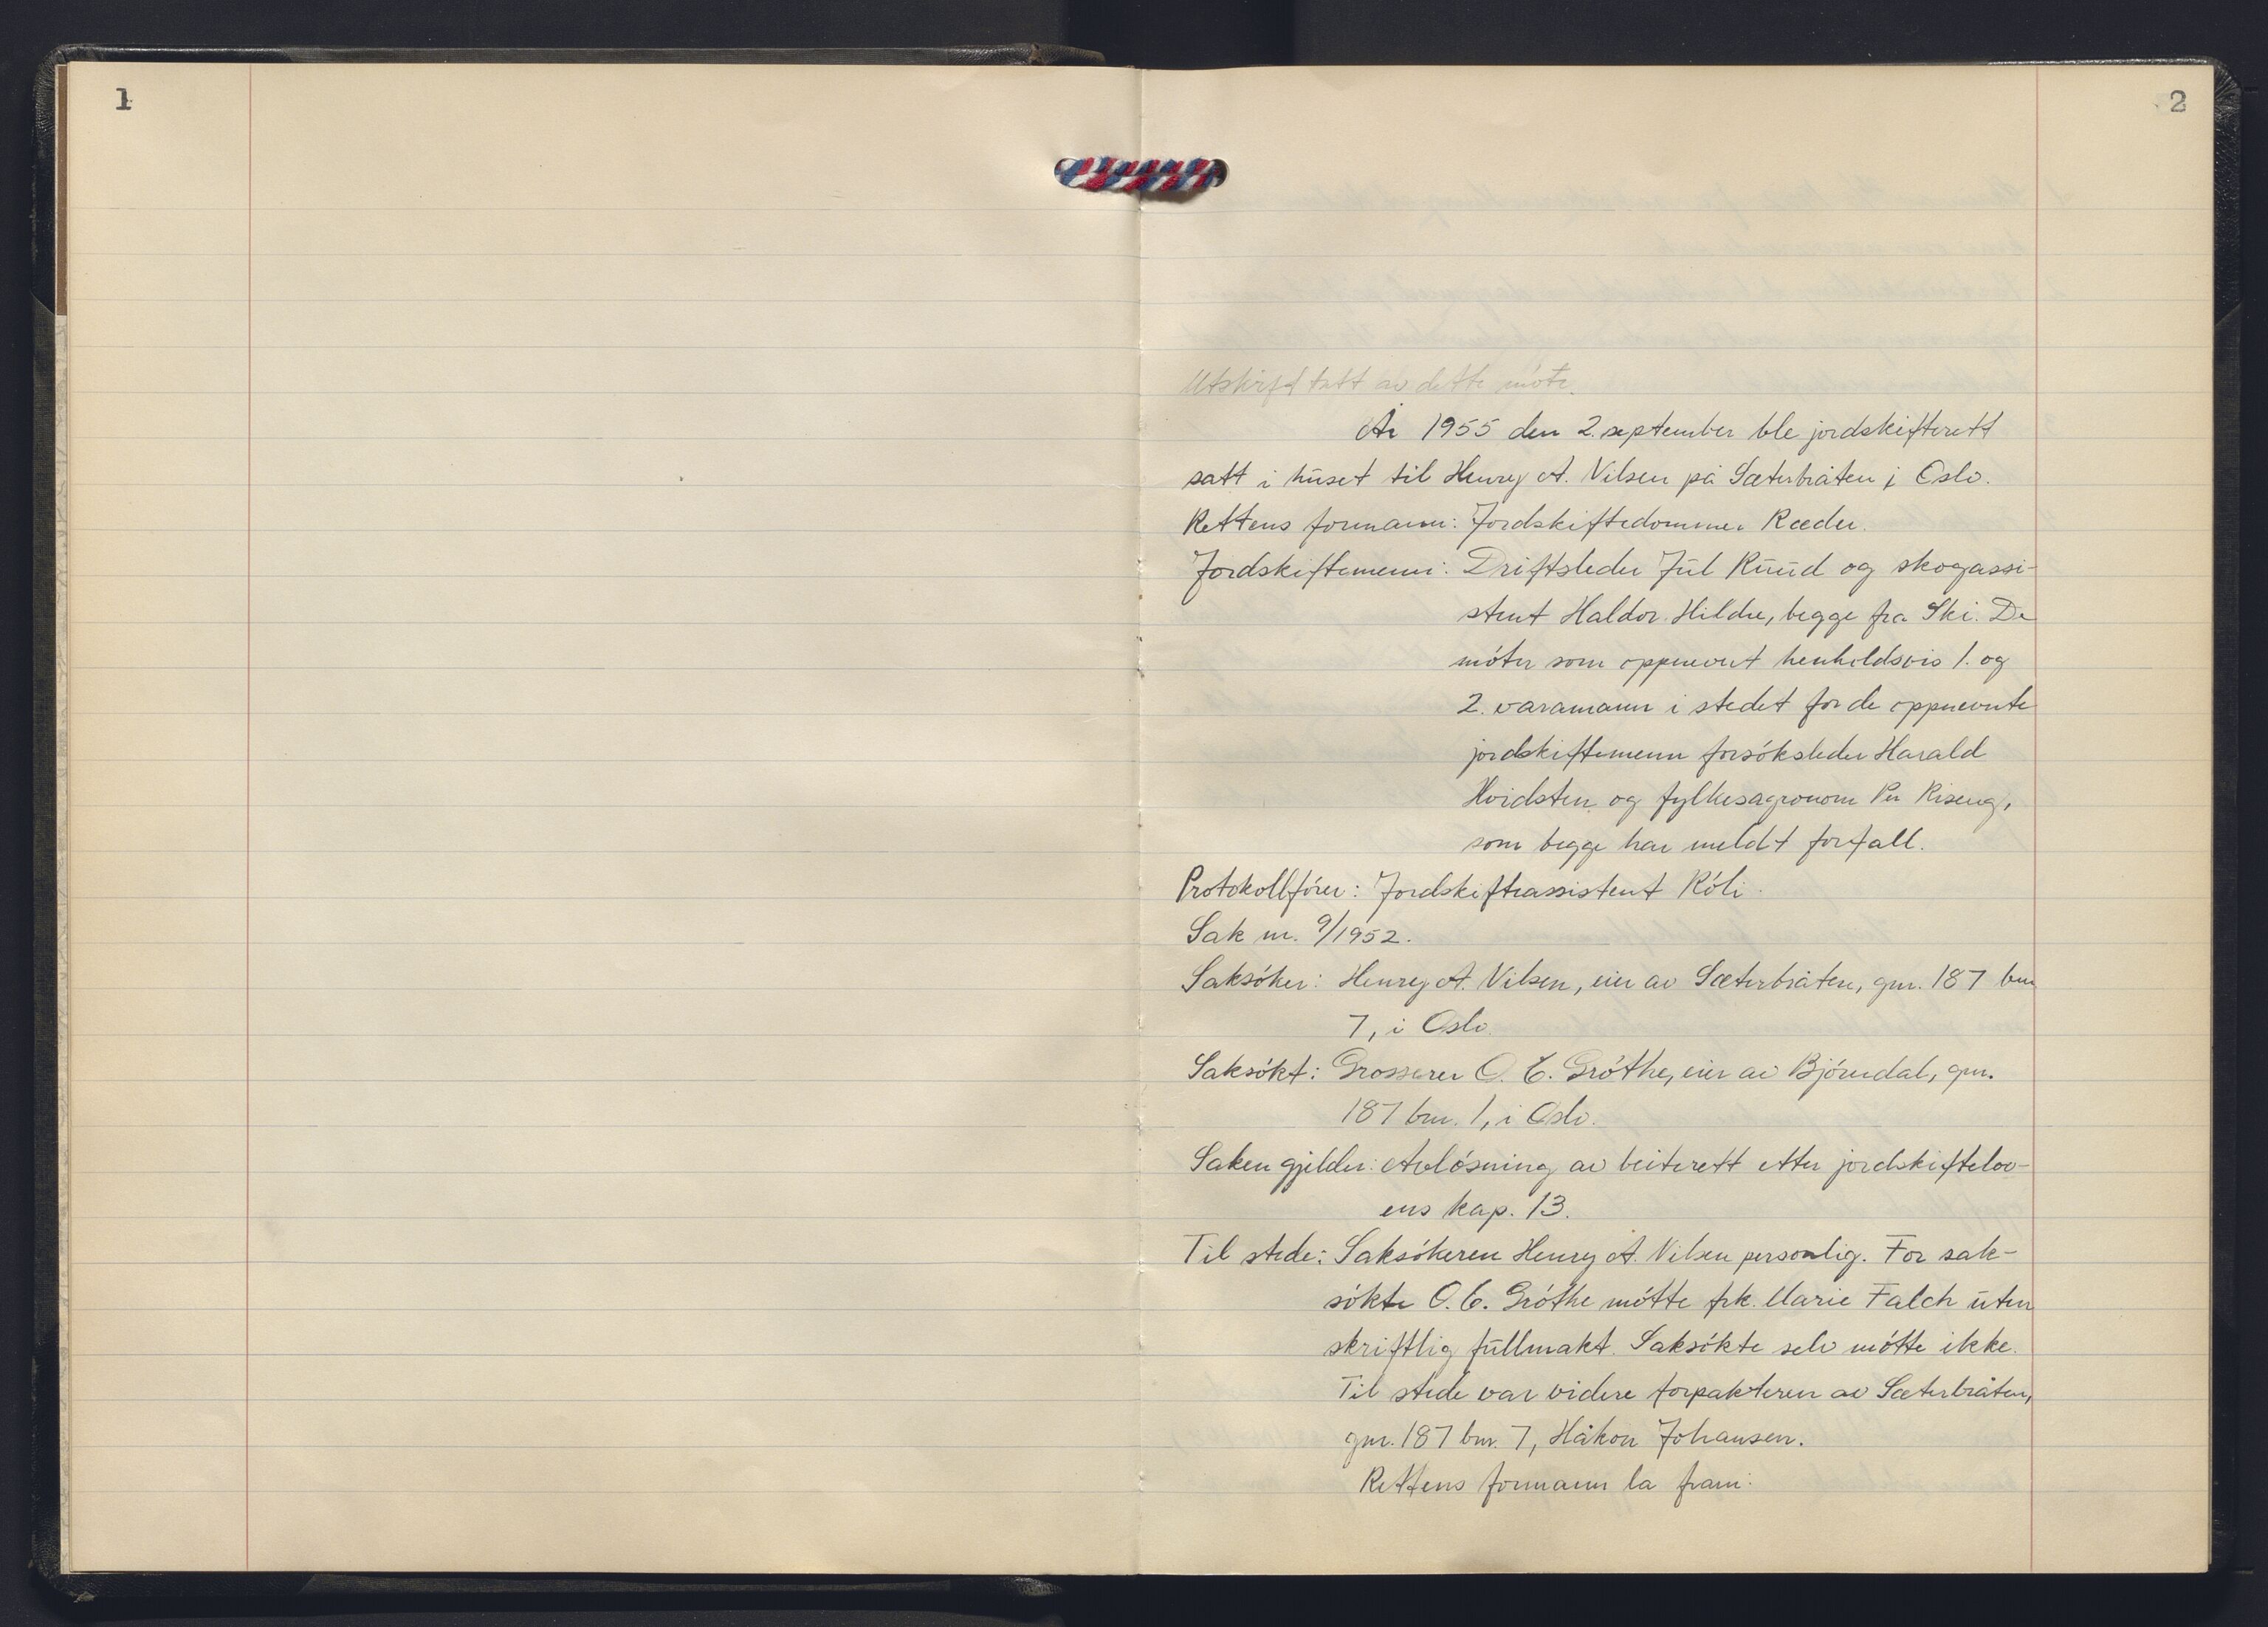 1
2
Utskrift tatt av dette møte.
År 1955 den 2. september ble jordskifterett
satt i huset til Henry A. Nilsen på Sæterbråten i Oslo.
Rettens formann: Jordskiftedommer Ræder.
Jordskiftemenn: Driftsleder Jul Ruud og skogassi-
stent Haldor Hildre, begge fra Ski. De
møter som oppnevnt henholdsvis 1. og
2. varamann i stedet for de oppnevnte
jordskiftemenn forsøksleder Harald
Hvidsten og fylkesagronom Per Riseng,
som begge har meldt forfall.
Protokollfører: Jordskifteassistent Röli.
Sak nr. 9/1952.
Saksøker: Henry A. Nilsen, eier av Sæterbråten, gnr. 187 bnr
7, i Oslo.
Saksøkt: Grosserer O. C. Grøthe, eier av Bjørndal, gnr.
187 bnr. 1, i Oslo.
Saken gjelder: Avløsning av beiterett etter jordskiftelov-
ens kap. 13.
Til stede: Saksøkeren Henry A. Nilsen personlig. For sak-
søkte O. C. Grøthe møtte frk. Marie Falch uten
skriftlig fullmakt. Saksøkte selv møtte ikke.
Til stede var videre forpakteren av Sæterbråten,
gnr. 187 bnr. 7, Håkon Johansen.
Rettens formann la fram: